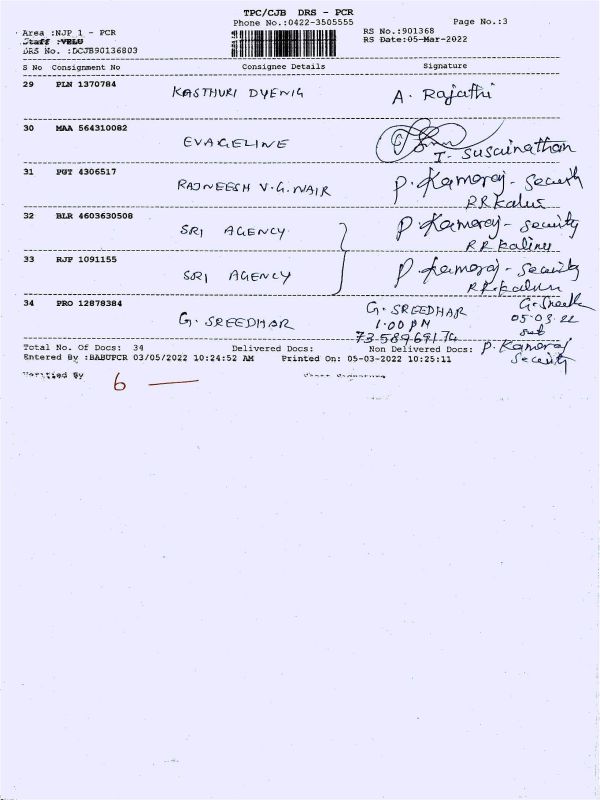 TPC/CJB DRS - PCR
Phone No.:0422-3505555
Page No.:3
Area :NJP 1 - PCR
RS No.:901368
Staff :VELU
RS Date:05-Mar-2022
DRS No. :DCJB90136803
S No Consignment No Consignee Details Signature
29 PLN 1370784 KASTHURI DYENIG A. Rajathi
30 MAA 564310082 EVAGELINE
I. Susainathan
31 PGT 4306517 RAJNEESH V.G. NAIR P. Kamaraj - Security
32 BLR 4603630508 SRI AGENCY P. Kamaraj - Security
33 RJP 1091155 SRI AGENCY P. Kamaraj - Security
34 PRO 12878384 G. SREEDHAR G. SREEDHAR
1.00 PM 05.03.22
Total No. Of Docs: 34 Delivered Docs: Non Delivered Docs: P. Kamaraj
Security
Entered By :BABUPCR 03/05/2022 10:24:52 AM Printed On: 05-03-2022 10:25:11
Verified By 6 —